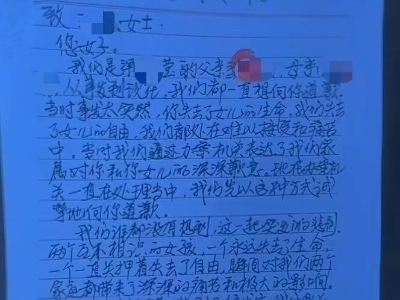 致: 女士:
您好!
我们是梁 莹的父亲 母亲
从事发到现在, 我们都一直想向你道歉
当时事发太突然, 你失去了女儿的生命, 我们失去
了女儿的自由, 我们都处在难以接受和痛苦
中, 当时我们通过办案机关表达了我们家
属对你和你女儿的深深歉意, 现在办案机
关一直在处理当中, 我们先以这种方式诚
挚地向你道歉。
我们谁都没有想到, 这一起突发的
两个互不相识的女孩, 一个永远失去了生命,
一个一直关押着失去了自由, 对我们两个
家庭都带来了深深的痛苦和极大的影响,